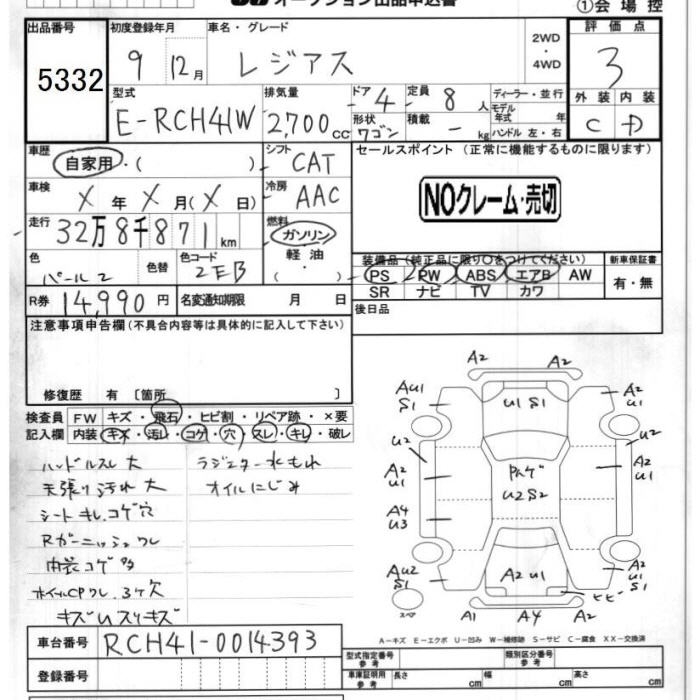 オークション出品申込書
①会場控
出品番号 初度登録年月 車名・グレード 評価点
5332 9年 12月 レジアス 2WD・4WD 3
型式 排気量 ドア 定員 ディーラー・並行 外装 内装
E-RCH41W 2,700cc 4 8人 モデル年式 年 C D
形状 ワゴン 積載 - kg ハンドル 左・右
車歴 シフト セールスポイント (正常に機能するものに限ります)
自家用・( ) CAT
車検 冷房 NOクレーム・売切
X年X月(X日) AAC
走行 燃料
32万8千871km ガソリン・軽油・( )
色 色替 色コード 装備品(純正品に限り○をつけてください) 新車保証書
パール2 2EB PS PW ABS エアB AW 有・無
SR ナビ TV カワ
R券 14,990円 名変通知期限 月 日 後日品
注意事項申告欄(不具合内容等は具体的に記入して下さい)
修復歴 有 〔箇所 〕
検査員 FW キズ・飛石・ヒビ割・リペア跡・×要
記入欄 内装 キズ・汚レ・コゲ・穴・スレ・キレ・破レ
ハンドルスレ大 ラジエター水もれ
天張り汚れ大 オイルにじみ
シートキレ、コゲ穴
Rガーニッシュワレ
内装コゲ多
ホイルCPワレ、3ケ欠
キズUスリキズ
A2
A2
AU1 S1
U1 S1
A2 U1
U2
U2
A2 U1
A2 U1
A4 U3
U2 S2
AU2 S1
A2 U1
A2 S1
ヒビ
スペア
A1 A4 A2
A-キズ E-エクボ U-凹み W-補修跡 S-サビ C-腐食 XX-交換済
車台番号 RCH41-0014393
型式指定番号 参考 類別区分番号 参考
登録番号 車庫証明用 参考 長さ cm 幅 cm 高さ cm